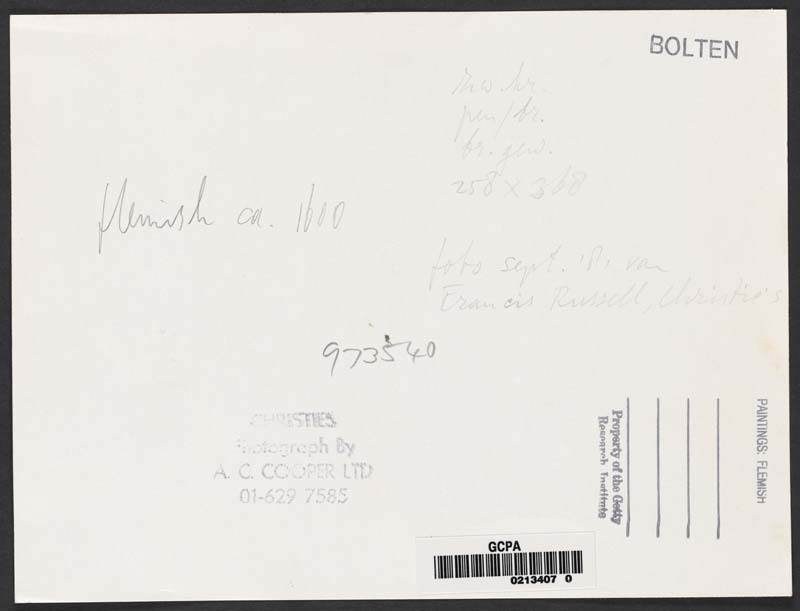 BOLTEN
zw. kr.
pen/br.
br. gew.
258 x 368
flemish ca. 1600
foto sept. '81 van
Francis Russell, Christie's
973540
CHRISTIES
Photograph By
A. C. COOPER LTD
01-629 7585
Property of the Getty
Research Institute
PAINTINGS: FLEMISH
GCPA
0213407 0